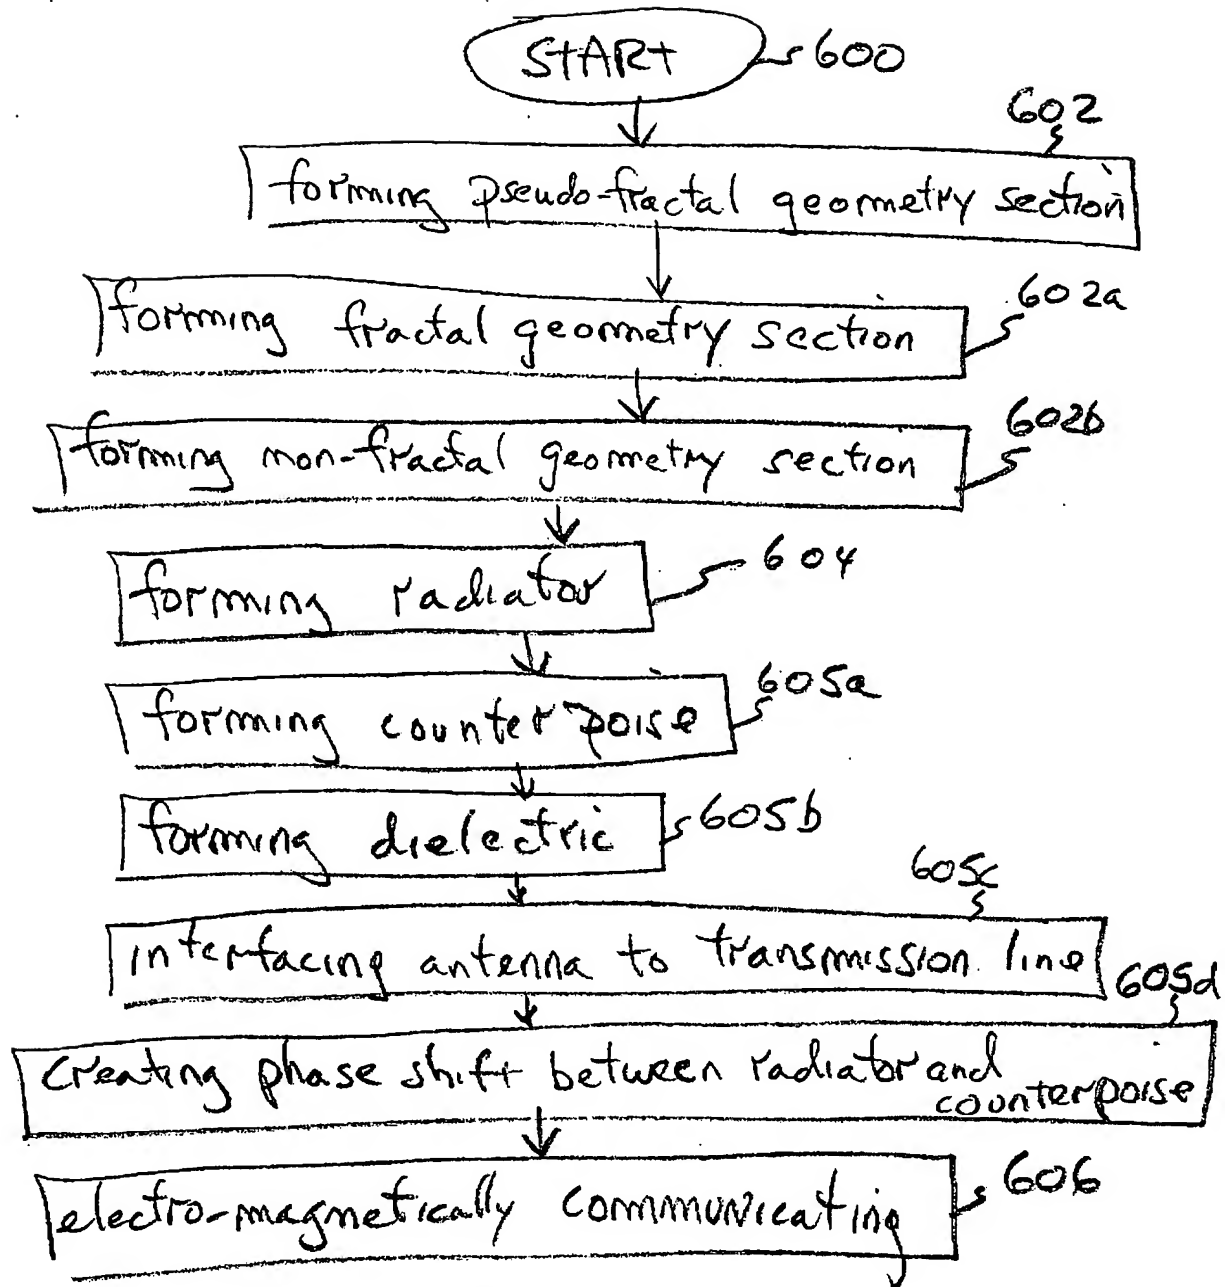 START 600
602
forming pseudo-fractal geometry section
602a
forming fractal geometry section
602b
forming non-fractal geometry section
forming radiator 604
605a
forming counterpoise
forming dielectric 605b
605c
interfacing antenna to transmission line
605d
creating phase shift between radiator and
counterpoise
electro-magnetically communicating 606